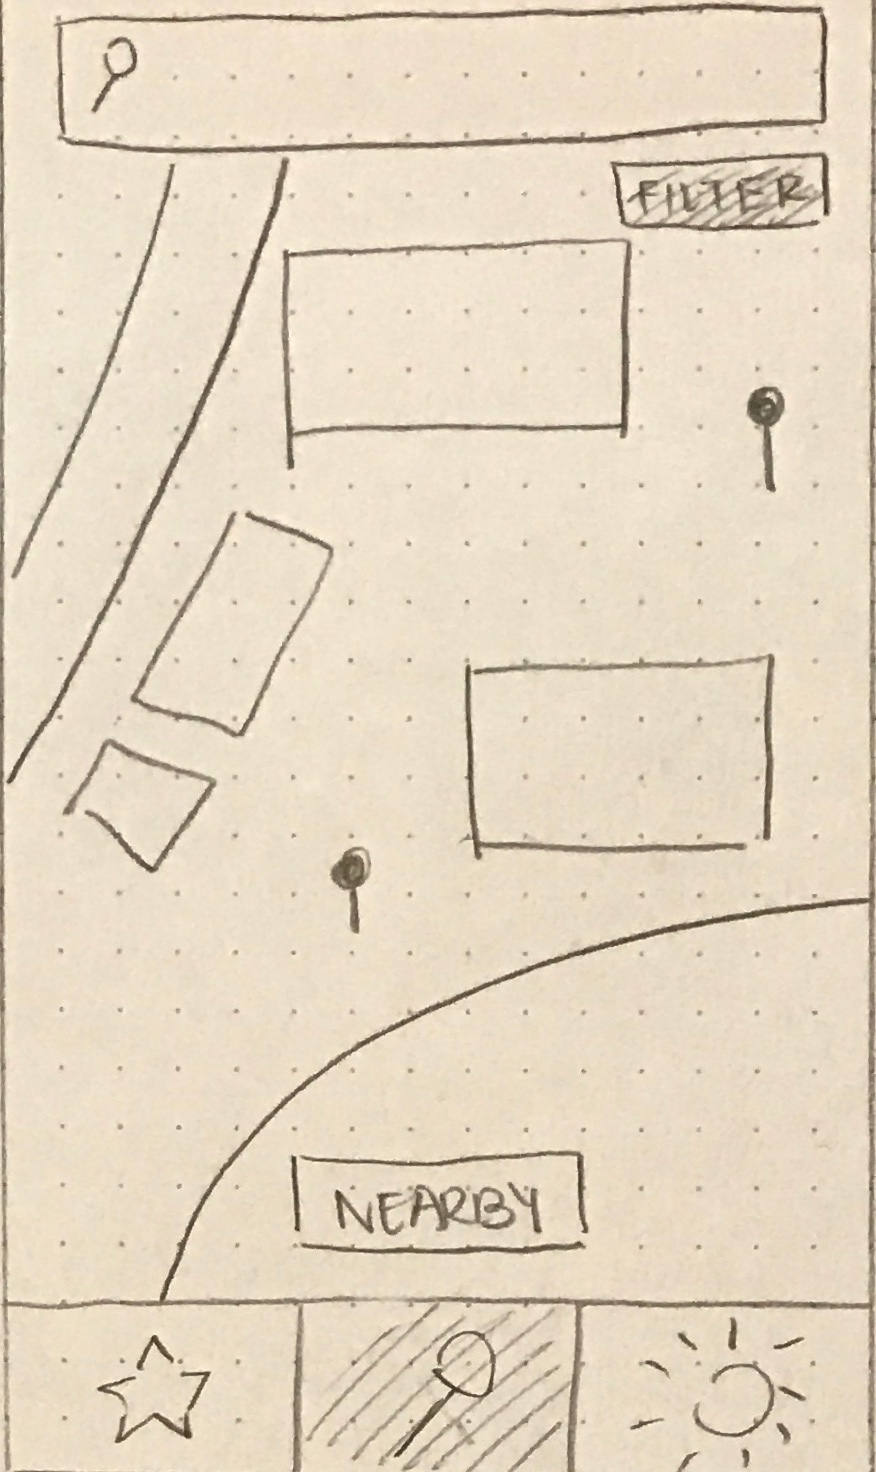 FILTER
NEARBY